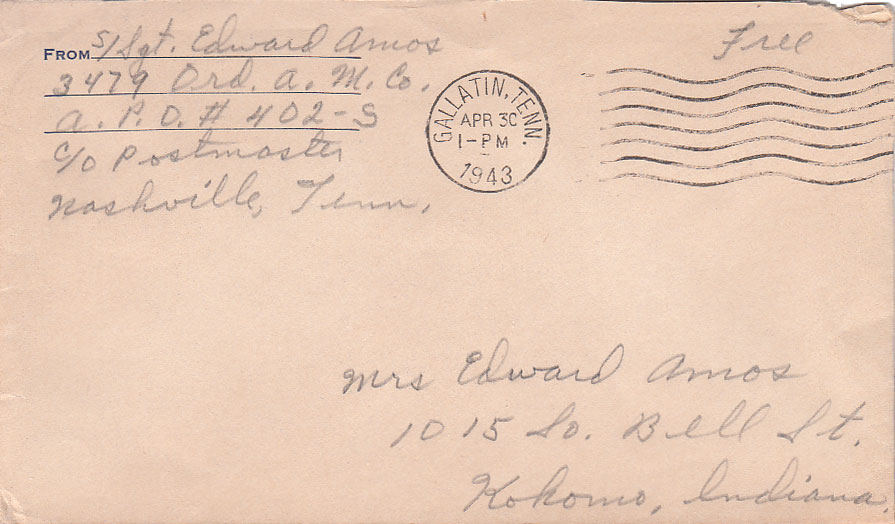 FROM S/Sgt. Edward Amos
3479 Ord. A. M. Co.
A. P. O. # 402-S
c/o Postmaster
Nashville, Tenn.
Free
GALLATIN, TENN.
APR 30
1-PM
1943
Mrs Edward Amos
1015 So. Bell St.
Kokomo, Indiana